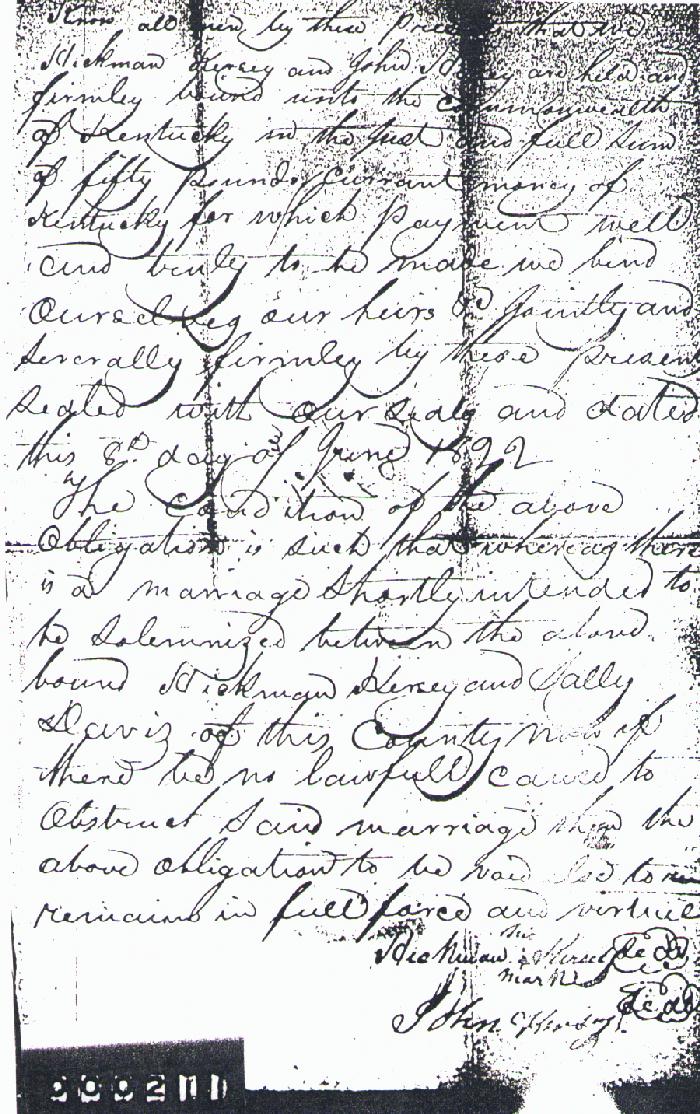 Know all men by these Presents that we
Hickman Kersey and John Kersey are held and
firmley bound unto the Commonwealth
of Kentucky in the Just and full Sum
of fifty Pounds Currant money of
Kentucky for which payment well
and truly to be made we bind
Ourselves our heirs &c Jointly and
Severally firmley by these presen
Sealed with our Seals and dated
this 8th day of June 1822
The Condition of the above
Obligation is such that whereas there
is a marriage Shortly intended to
be Solemnized between the above
bound Hickman Kersey and Sally
Davis of this County now if
there be no lawfull caus to
Obstruct Said marriage then the
above obligation to be void Els to
remain in full force and virtue
Hickman his Kersey Seal
mark
John Kersey Seal
000211